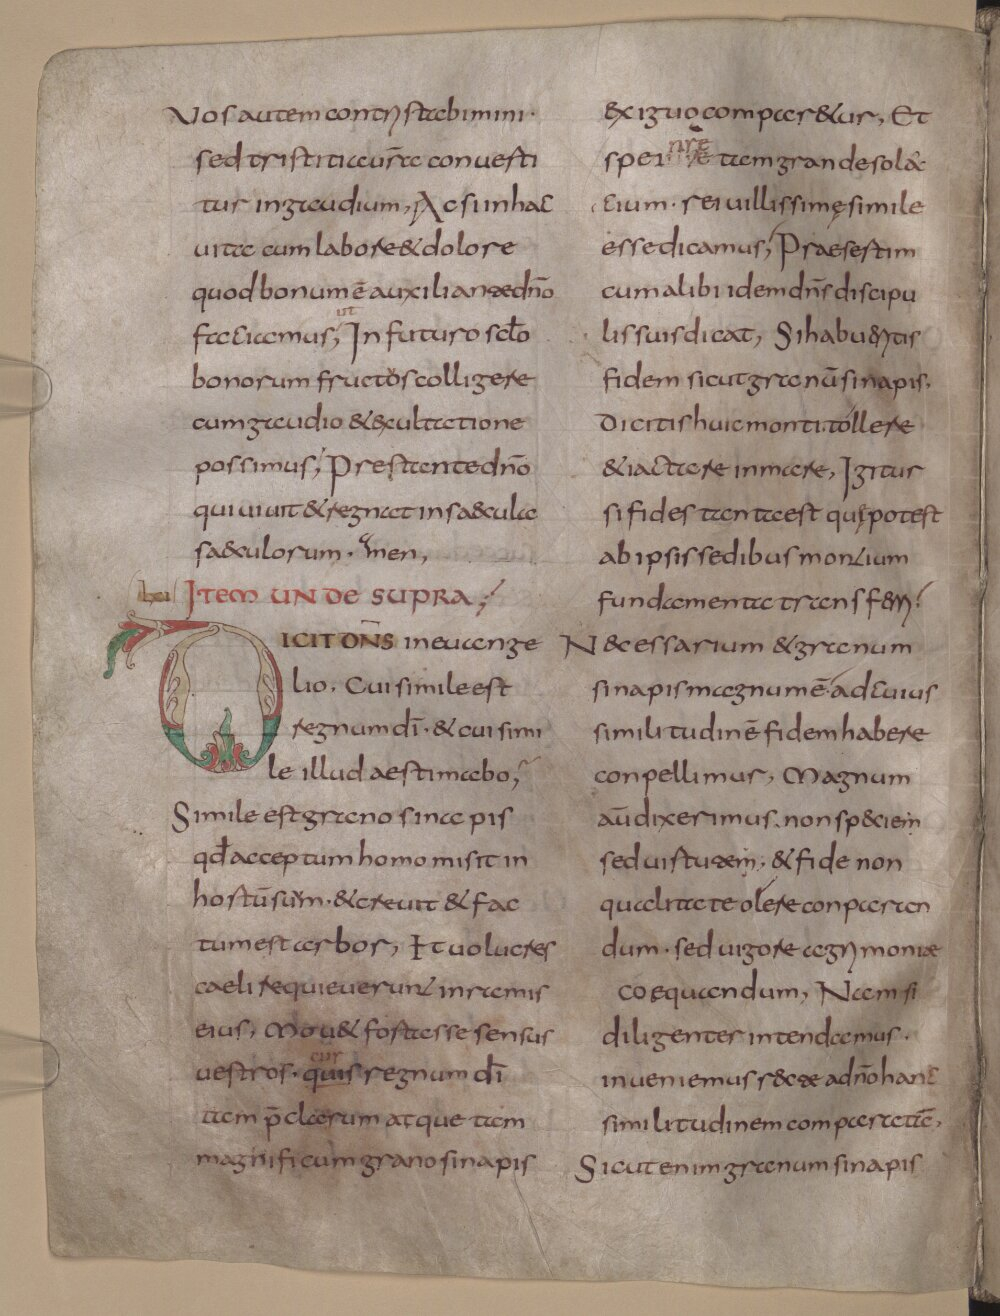 Vos autem contristabimini·
sed tristitia ur̄a conuerti
tur in gaudium, Ac si in hac
uita cum labore & dolore
quod bonum ē auxiliante dn̄o
faciamus; ut In futuro sclo
bonorum fructos colligere
cum gaudio & exultatione
possimus; Prestante dn̄o
qui uiuit & regnat in saecula
saeculorum· amen,
ITEM UNDE SUPRA;
DICIT DN̄S in euange
lio. Cui simile est
regnum dī· & cui simi
le illud aestimabo;
Simile est grano sina pis
qđ acceptum homo misit in
hortū suum· & creuit & fac
tum est arbor, Et uolucres
caeli requieuerunt in ramis
eius, Mouet fortasse sensus
uestros· cur quis regnum dī
tam p̄clarum atque tam
magnificum grano sinapis
exiguo compar&ur, Et
spei nr̄ae tam grande sola
cium· rei uillissimę simile
esse dicamus; Praesertim
cum alibi idem dn̄s discipu
lis suis dicat, Si habueritis
fidem sicut granū sinapis,
Dicitis huic monti· tollere
& iactare in mare, Igitur
si fides tanta est quę potest
ab ipsis sedibus montium
fundamenta transferri?
N&essarium & granum
sinapis magnum ē· ad cuius
similitudinē fidem habere
conpellimur, Magnum
aūt diximus· non speciem
sed uirtutem· & fide non
qualitate olere conparan
dum· sed uigore acrimoniae
coequandum, Nam si
diligenter intendamus·
inueniemus recte a dn̄o hanc
similitudinem comparatā,
Sicut enim granum sinapis